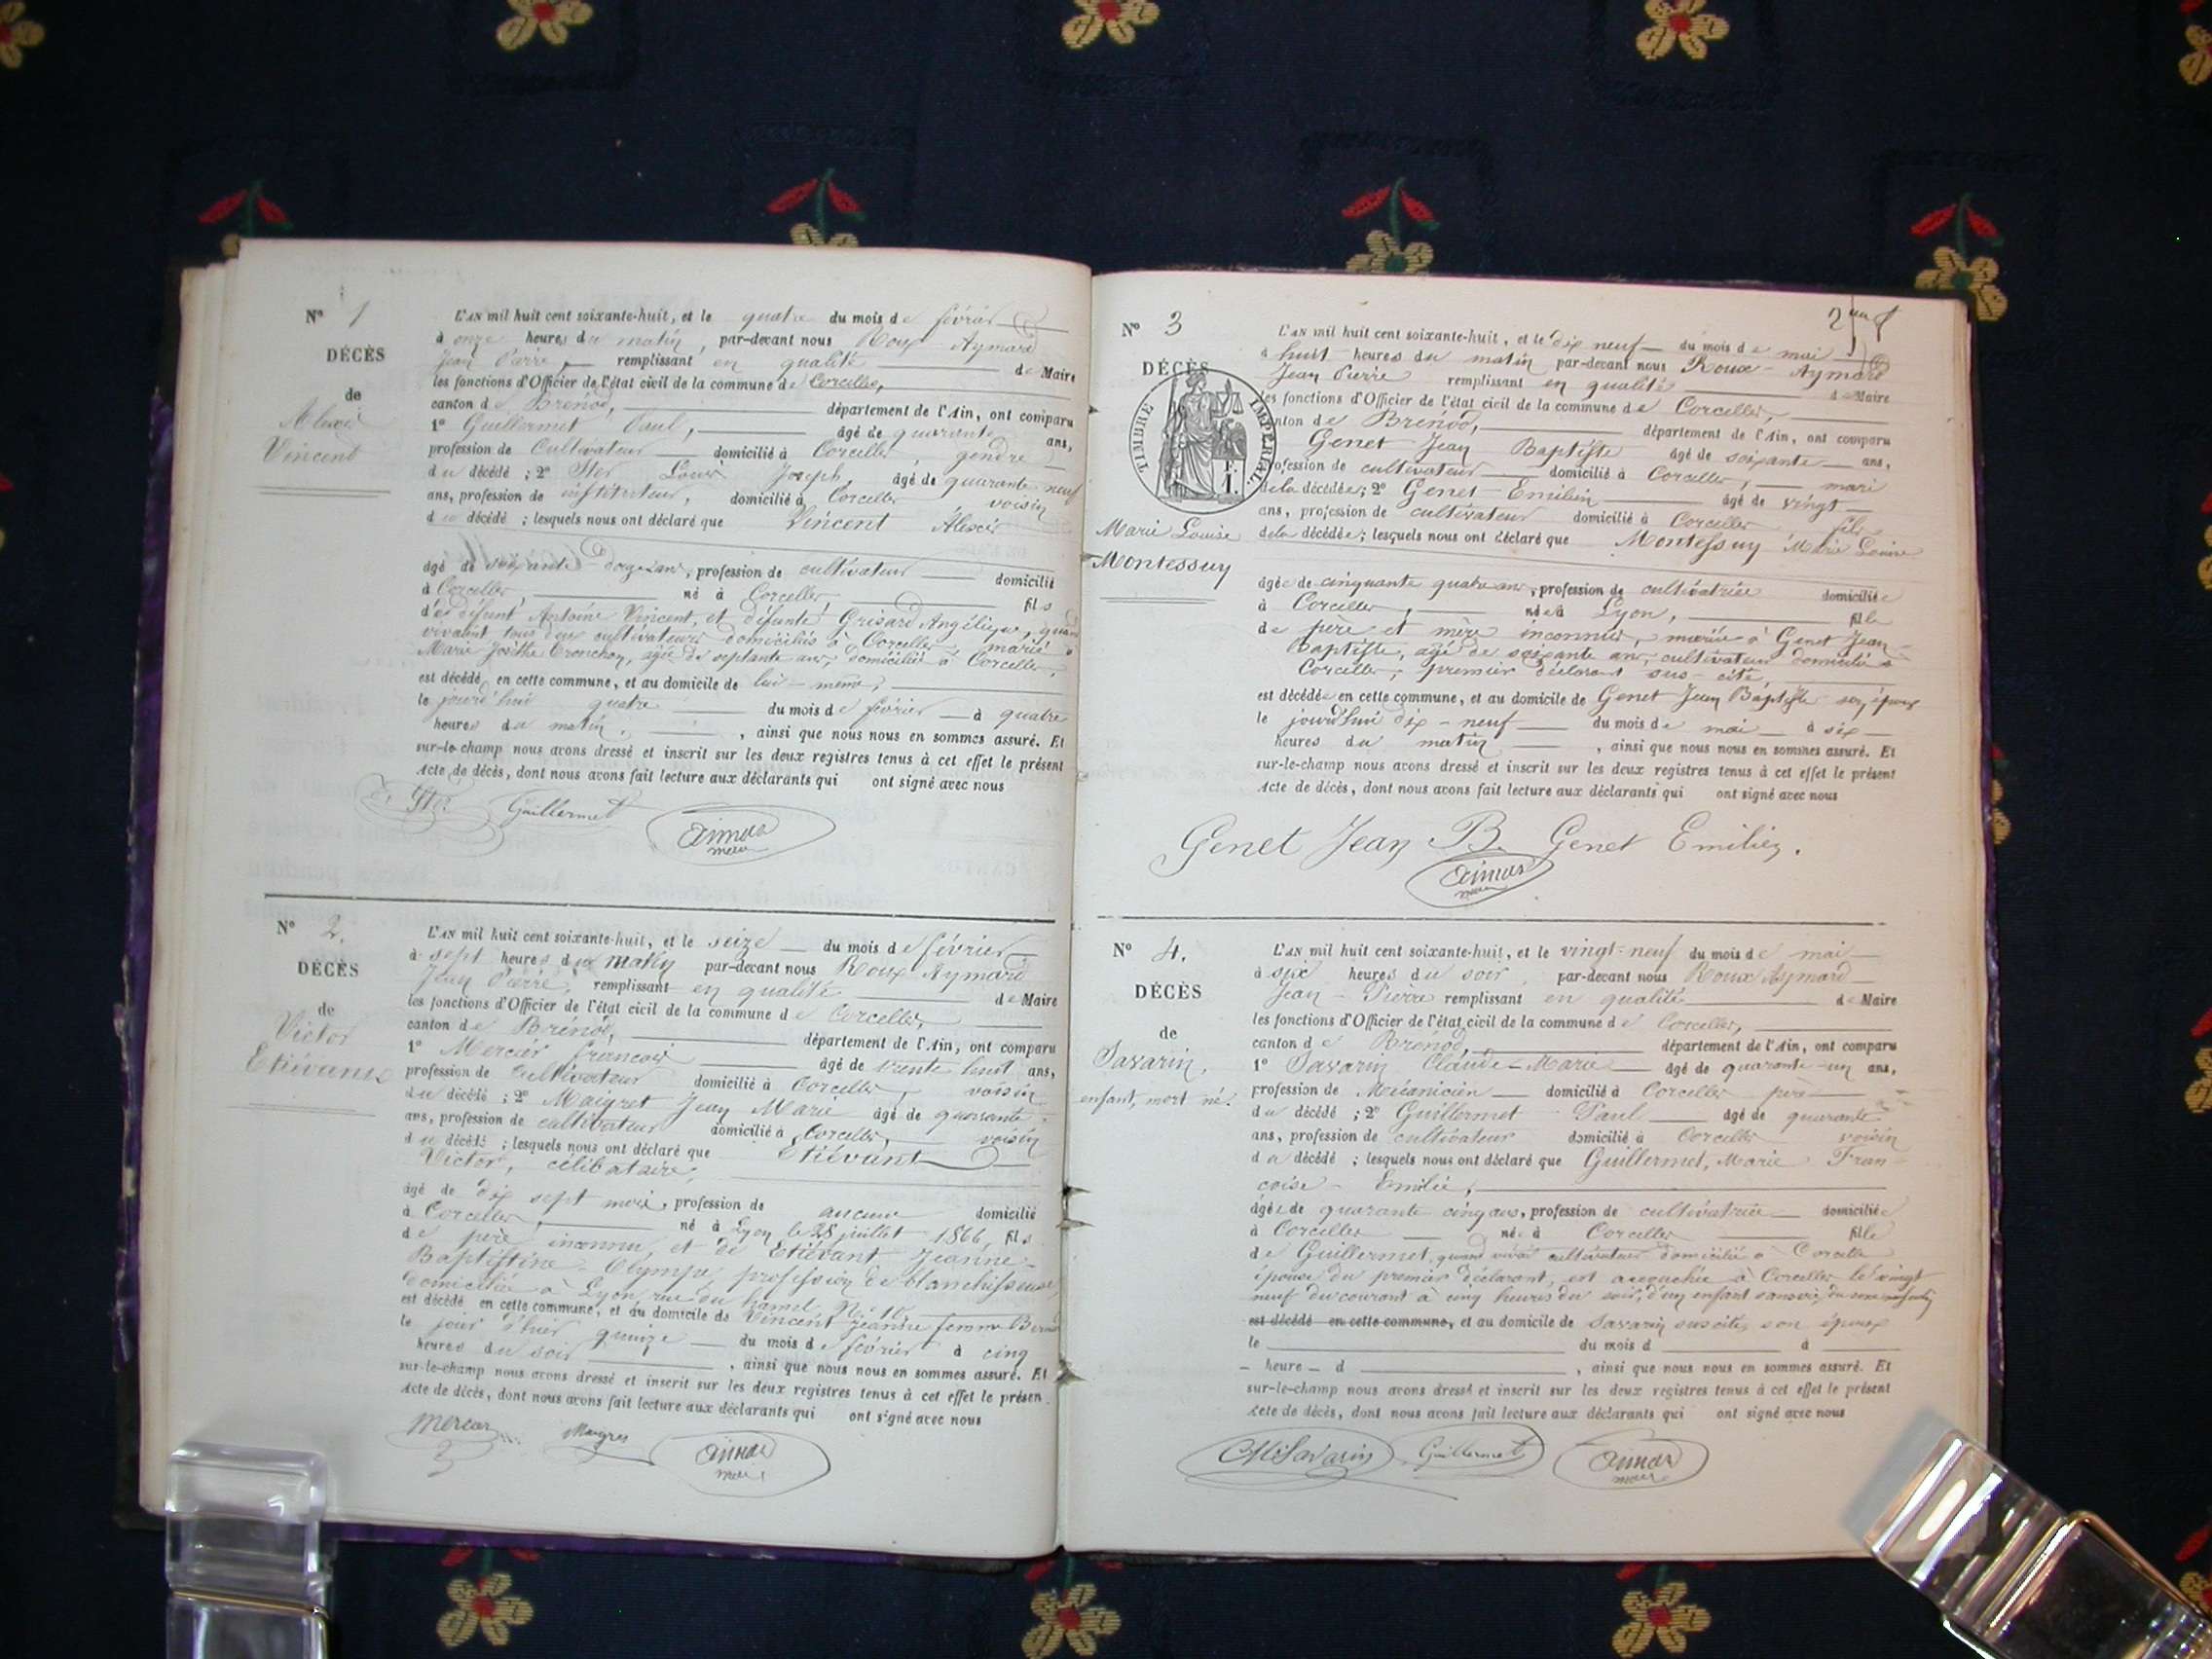 N° 1
DÉCÈS
de
Alexis
Vincent
L'AN mil huit cent soixante-huit, et le quatre du mois de février
à onze heures du matin, par-devant nous Roux-Aymard
Jean Pierre, remplissant en qualité de Maire
les fonctions d'Officier de l'état civil de la commune de Corcelles,
canton de Brénod, département de l'Ain, ont comparu
1° Guillermet Paul, âgé de quarante ans,
profession de Cultivateur domicilié à Corcelles, gendre
du décédé ; 2° Louis Joseph, âgé de quarante neuf
ans, profession de instituteur, domicilié à Corcelles voisin
du décédé ; lesquels nous ont déclaré que Vincent Alexis
âgé de soixante-douze ans, profession de cultivateur domicilié
à Corcelles, né à Corcelles, fils
des défunt Antoine Vincent, et défunte Grisard Angélique, quand
vivaient tous deux cultivateurs domiciliés à Corcelles, marié à
Marie Josèthe Tronchon, âgée de septante ans, domiciliée à Corcelles,
est décédé en cette commune, et au domicile de lui-même,
le jourd'hui quatre du mois de février à quatre
heures du matin, ainsi que nous nous en sommes assuré. Et
sur-le-champ nous avons dressé et inscrit sur les deux registres tenus à cet effet le présent
Acte de décès, dont nous avons fait lecture aux déclarants qui ont signé avec nous
Guillermet
Aimar
maire
N° 2.
DÉCÈS
de
Victor
Etiévant
L'AN mil huit cent soixante-huit, et le seize du mois de février
à sept heures du matin par-devant nous Roux Aymard
Jean Pierre, remplissant en qualité de Maire
les fonctions d'Officier de l'état civil de la commune de Corcelles,
canton de Brénod, département de l'Ain, ont comparu
1° Mercier François âgé de trente huit ans,
profession de cultivateur domicilié à Corcelles, voisin
du décédé ; 2° Maigret Jean Marie âgé de quarante
ans, profession de cultivateur domicilié à Corcelles, voisin
du décédé ; lesquels nous ont déclaré que Etiévant
Victor, célibataire,
âgé de dix sept mois, profession de aucune domicilié
à Corcelles, né à Lyon le 28 juillet 1866, fils
de père inconnu, et de Etiévant Jeanne-
Baptistine-Olympe, profession de blanchisseuse,
domiciliée à Lyon, rue du
est décédé en cette commune, et au domicile de Vincent Jeanne femme
le jour d'hier quinze du mois de février à cinq
heures du soir, ainsi que nous nous en sommes assuré. Et
sur-le-champ nous avons dressé et inscrit sur les deux registres tenus à cet effet le présen
Acte de décès, dont nous avons fait lecture aux déclarants qui ont signé avec nous
Aimar
maire
N° 3
DÉCÈS
TIMBRE IMPÉRIAL
Marie Louise
Montessuy
L'AN mil huit cent soixante-huit, et le dix neuf du mois de mai
à huit heures du matin par-devant nous Roux-Aymard
Jean Pierre remplissant en qualité de Maire
les fonctions d'Officier de l'état civil de la commune de Corcelles,
canton de Brénod, département de l'Ain, ont comparu
Genet Jean Baptiste âgé de soixante ans,
profession de cultivateur domicilié à Corcelles, mari
de la décédée; 2° Genet Emilien âgé de vingt
ans, profession de cultivateur domicilié à Corcelles fils
de la décédée; lesquels nous ont déclaré que Montessuy Marie Louise
âgée de cinquante quatre ans, profession de cultivatrice domiciliée
à Corcelles, née à Lyon, fille
de père et mère inconnus, mariée à Genet Jean-
Baptiste, âgé de soixante ans, cultivateur domicilié à
Corcelles, premier déclarant sus-cité,
est décédée en cette commune, et au domicile de Genet Jean Baptiste son époux
le jourd'hui dix-neuf du mois de mai à six
heures du matin, ainsi que nous nous en sommes assuré. Et
sur-le-champ nous avons dressé et inscrit sur les deux registres tenus à cet effet le présent
Acte de décès, dont nous avons fait lecture aux déclarants qui ont signé avec nous
Genet Jean B. Genet Emilien.
Aimar
maire
N° 4.
DÉCÈS
de
Savarin,
enfant, mort né.
L'AN mil huit cent soixante-huit, et le vingt-neuf du mois de mai
à six heures du soir, par-devant nous Roux Aymard
Jean-Pierre remplissant en qualité de Maire
les fonctions d'Officier de l'état civil de la commune de Corcelles,
canton de Brénod, département de l'Ain, ont comparu
1° Savarin Claude-Marie âgé de quarante-un ans,
profession de Mécanicien domicilié à Corcelles père
du décédé ; 2° Guillermet Paul âgé de quarante
ans, profession de cultivateur domicilié à Corcelles voisin
du décédé ; lesquels nous ont déclaré que Guillermet, Marie Fran-
çoise-Emilie,
âgée de quarante cinq ans, profession de cultivatrice domiciliée
à Corcelles née à Corcelles fille
de Guillermet, quand vivait cultivateur domicilié à Corcelles
épouse du premier déclarant, est accouchée à Corcelles le vingt
neuf du courant à cinq heures du soir, d'un enfant sans vie, du sexe masculin
est décédé en cette commune, et au domicile de Savarin suscité, son époux
le du mois d à
heure d , ainsi que nous nous en sommes assuré. Et
sur-le-champ nous avons dressé et inscrit sur les deux registres tenus à cet effet le présent
Acte de décès, dont nous avons fait lecture aux déclarants qui ont signé avec nous
Savarin Guillermet Aimar
maire